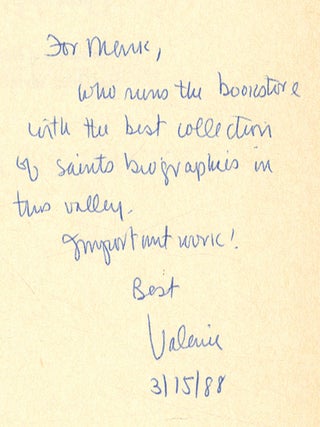 For Merric,
who runs the bookstore
with the best collection
of saints biographies in
this valley.
Important work!
Best
Valerie
3/15/88